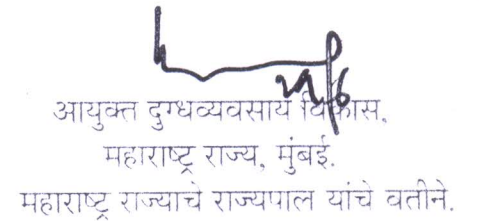 आयुक्त दुग्धव्यवसाय विकास,
महाराष्ट्र राज्य, मुंबई.
महाराष्ट्र राज्याचे राज्यपाल यांचे वतीने.